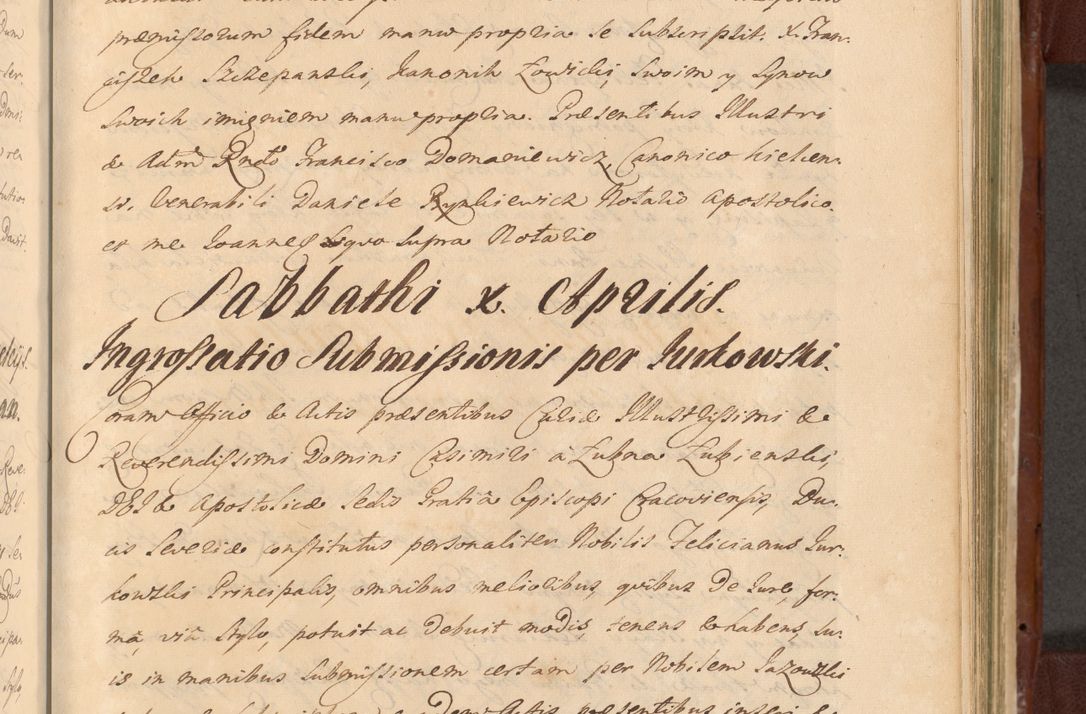 præmissorum fidem manu propria se subscripsit. X. Fran-
ciszek Szczepanski, Kanonik Łowicki, swoim y synow
swoich imieniem manu propria. Præsentibus Illustri
& Adm Rndo Francisco Domaniewicz, Canonico Kielcen-
si, Venerabili Daniele Rynkiewicz Notario Apostolico
et me Joannes Siquo supra Notario
Sabbathi x. Aprilis.
Ingrossatio Submissionis per Jurkowski.
Coram Officio & Actis præsentibus Curiæ Illustrissimi &
Reverendissimi Domini Casimiri à Łubna Łubienski,
DEI & Apostolicæ Sedis Gratiâ Episcopi Cracoviensis, Du-
cis Severiæ constitutus personaliter Nobilis Felicianus Jur-
kowski Principalis, omnibus melioribus, quibus de Jure, for-
mâ, viâ Stylo, potuit ac debuit modis, tenens & habens, su-
is in manibus Submissionem certam per Nobilem Jazowski